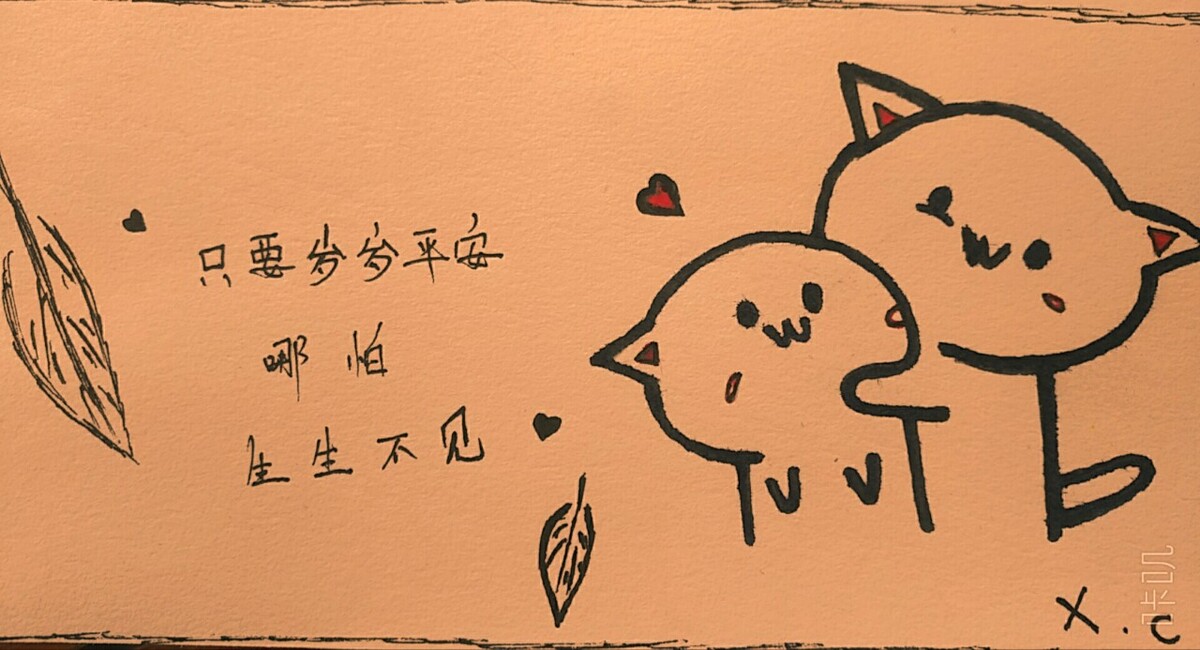 只要岁岁平安
哪怕
生生不见
X.C
咔叽